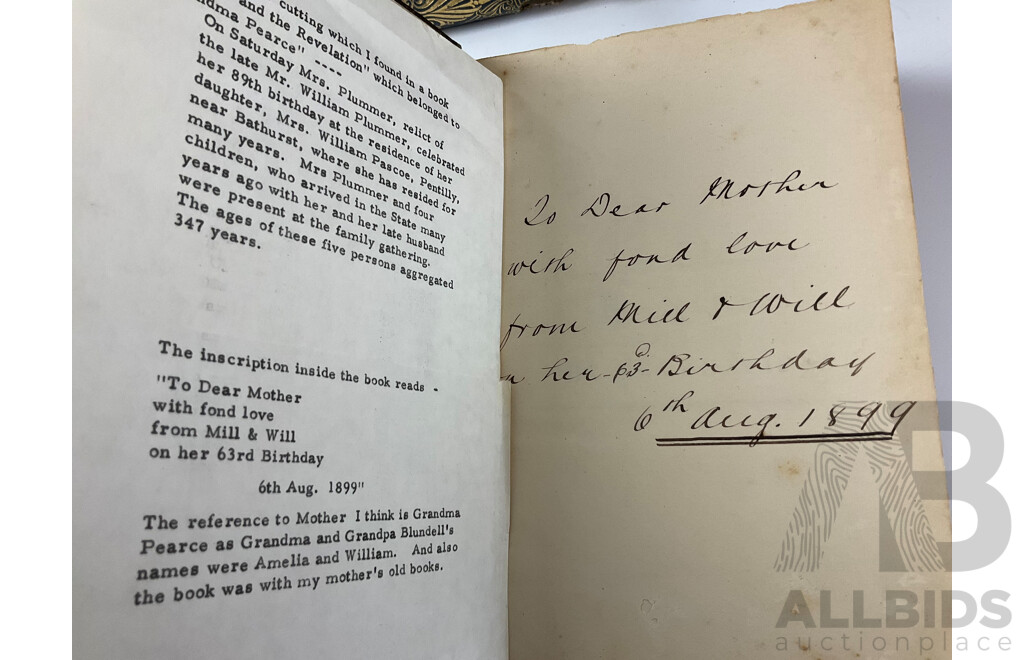 cutting which I found in a book
and the Revelation" which belonged to
ndma Pearce" ----
On Saturday Mrs. Plummer, relict of
the late Mr. William Plummer, celebrated
her 89th birthday at the residence of her
daughter, Mrs. William Pascoe, Pentilly,
near Bathurst, where she has resided for
many years. Mrs Plummer and four
children, who arrived in the State many
years ago with her and her late husband
were present at the family gathering.
The ages of these five persons aggregated
347 years.
The inscription inside the book reads -
"To Dear Mother
with fond love
from Mill & Will
on her 63rd Birthday
6th Aug. 1899"
The reference to Mother I think is Grandma
Pearce as Grandma and Grandpa Blundell's
names were Amelia and William. And also
the book was with my mother's old books.
To Dear Mother
with fond love
from Mill & Will
n her - 63d - Birthday
6th Aug. 1899
AB
ALLBIDS
auctionplace